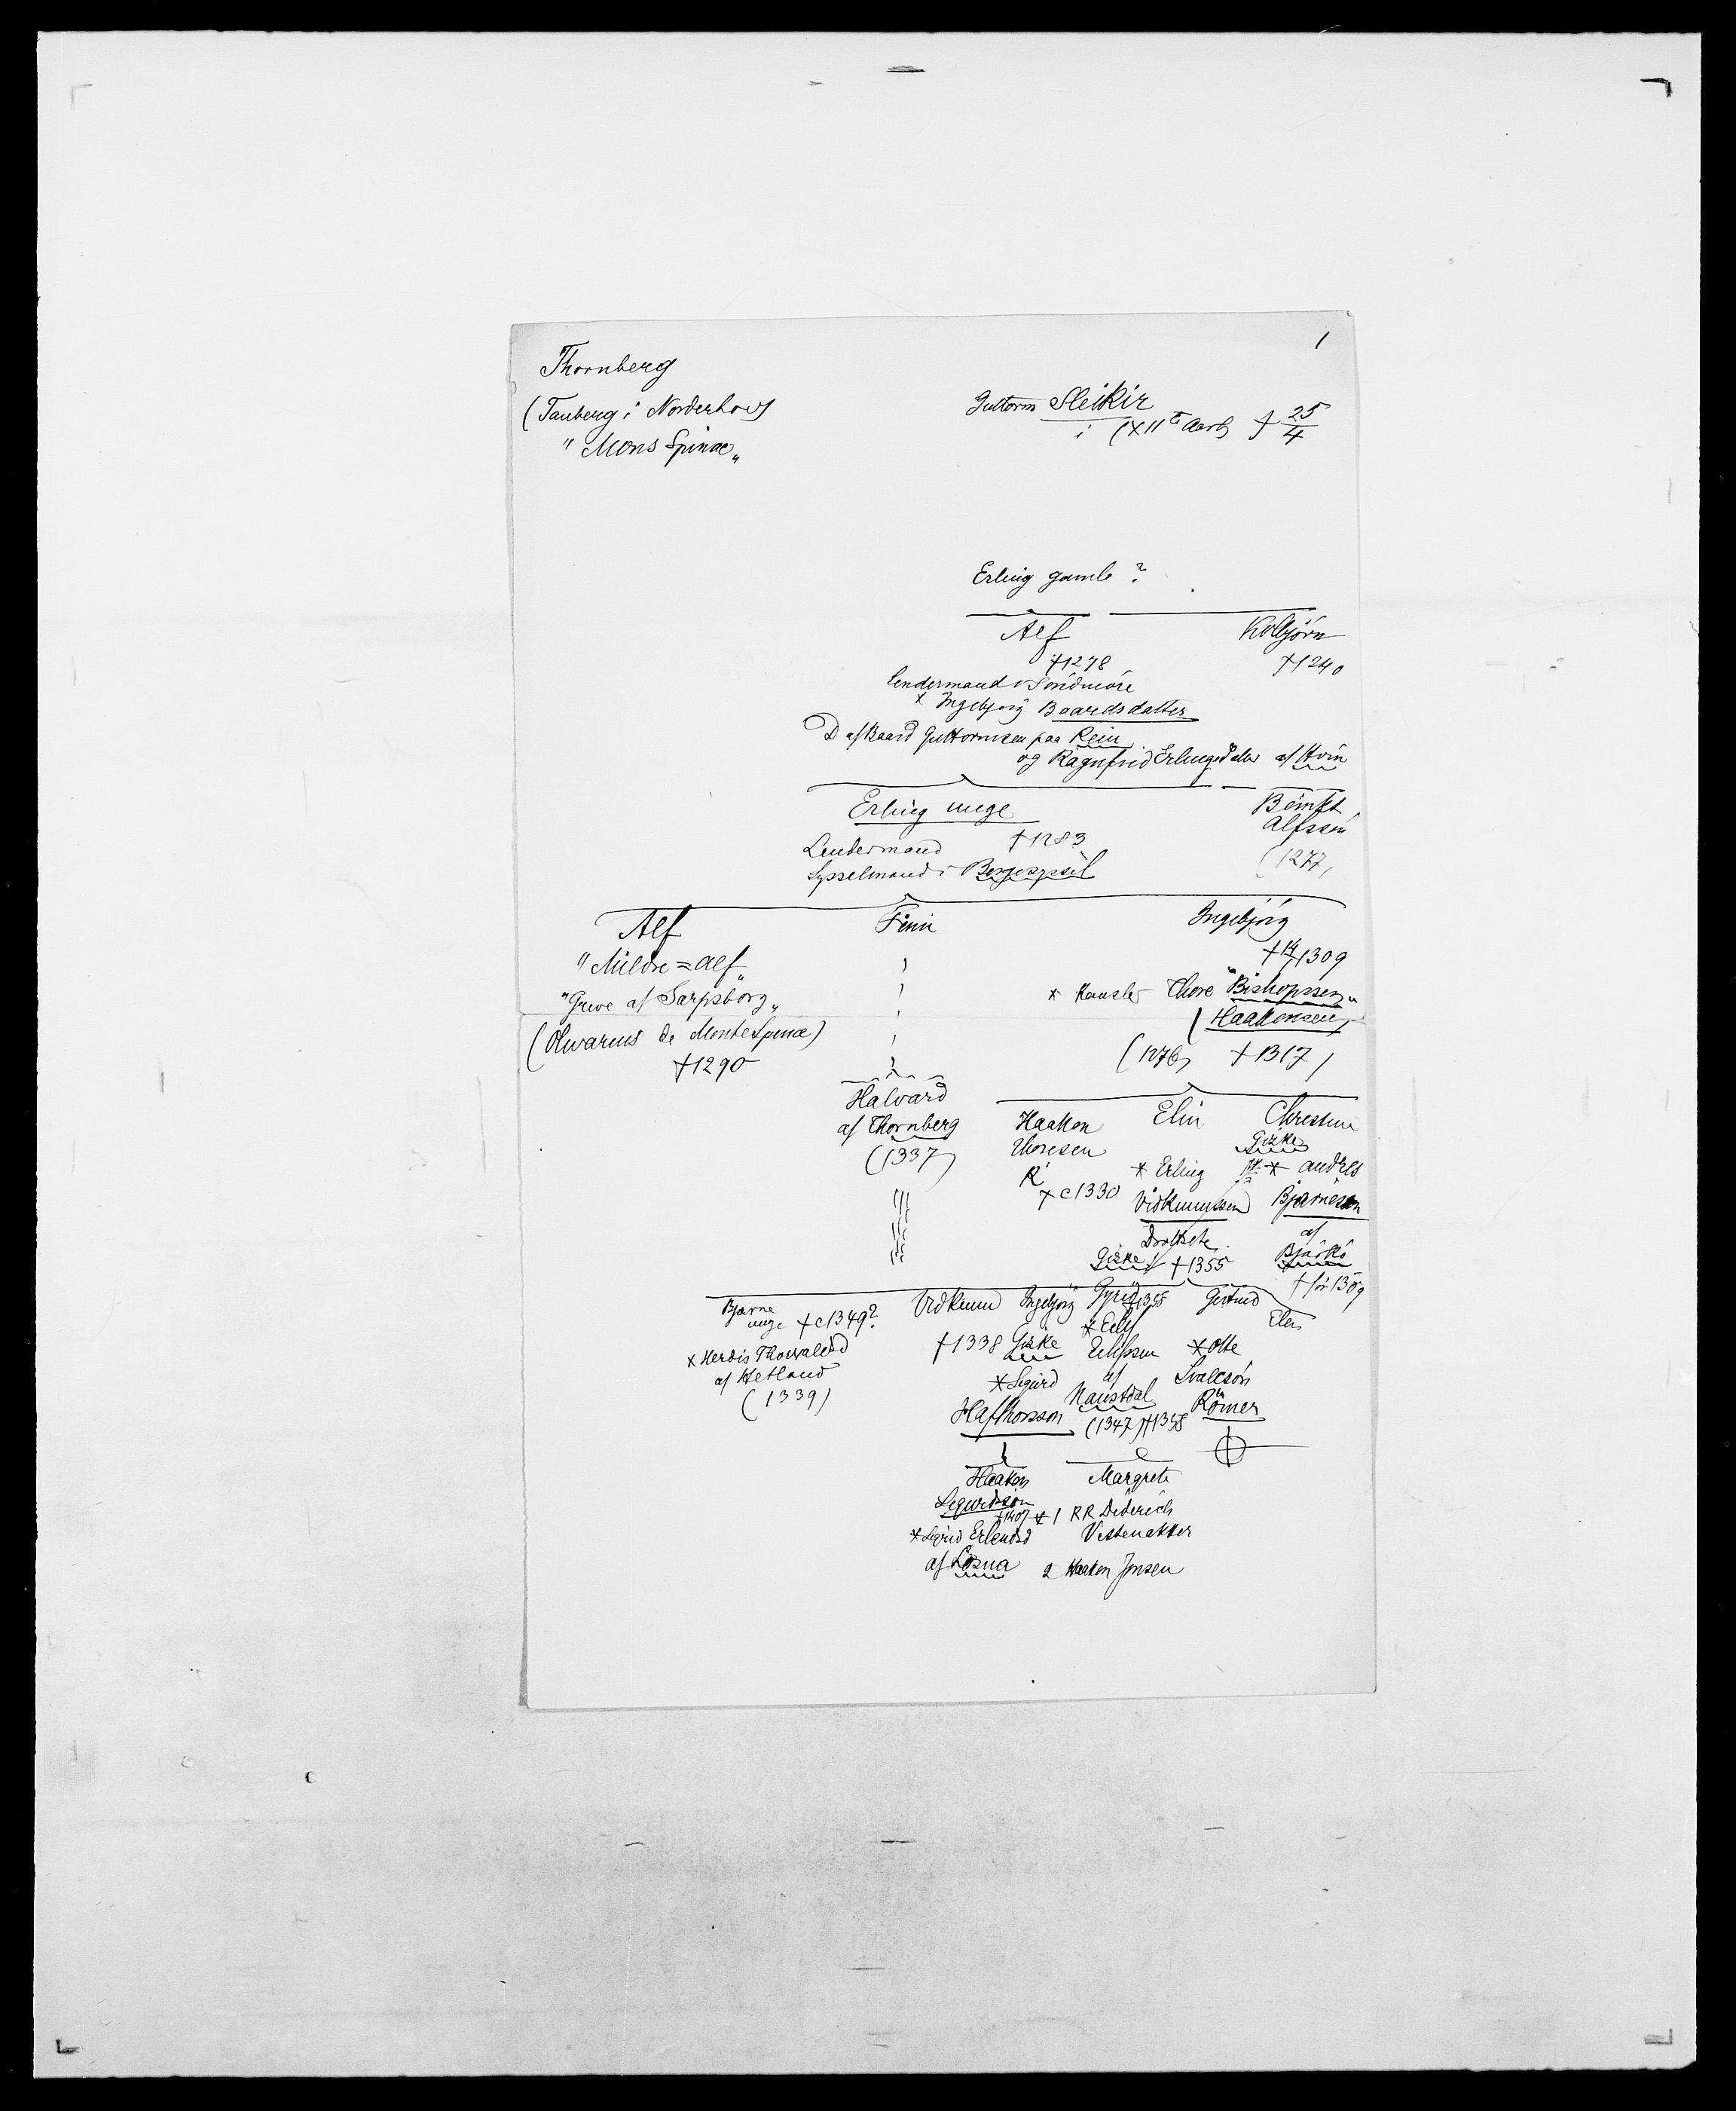 1
Thornberg
(Tanberg i Norderhov)
"Mons Spinæ"
Guttorm Sleikir
i (XIIte Aarh) † 25/4
Erling gamle?
Alf
†1278
Lendermand i Söndmöre
* Ingebjörg Baardsdatter
D af Baard Guttormsen paa Rein
og Ragnfrid Erlingsdatter af Kvin
Kolbjörn
†1240
Erling unge
†1283
Lendermand
Sysselmand i Borgesysel
Alfssön
(1277)
Alf
"Mildre=Alf"
"Greve af Sarpsborg"
(Olwarius de Monte Spinæ)
†1290
Finn
Halvard
af Thornberg
(1337)
Ingebjörg
1309
* Kansler Thore "Bishopssen"
(Haakonsen)
(1276) †1317)
Haakon
Thoresen
R
†c1330
Elin
* Erling
Vidkunnssen
Drottsete
Giske †1355
Christine
Giske
* Andres
Bjarnessen
af
Bjarkö
† för 1309
Bjarne
unge †c1349?
* Herdis Thorvaldsd
af Hetland
(1339)
Vidkunn
†1338
Ingebjörg
Giske
* Sigurd
Hafthorsson
Gyrid
1358
Eilifssen
af
Naustdal
(1347) †1358
Gertrud
* Otte
Svalesön
Römer
Elin
Haakon
Sigurdssön
†1407
* Sigrid Erlendsd
af Losna
Margrete
* 1 RR Diderich
Vistenakker
2 Haakon Jonsen